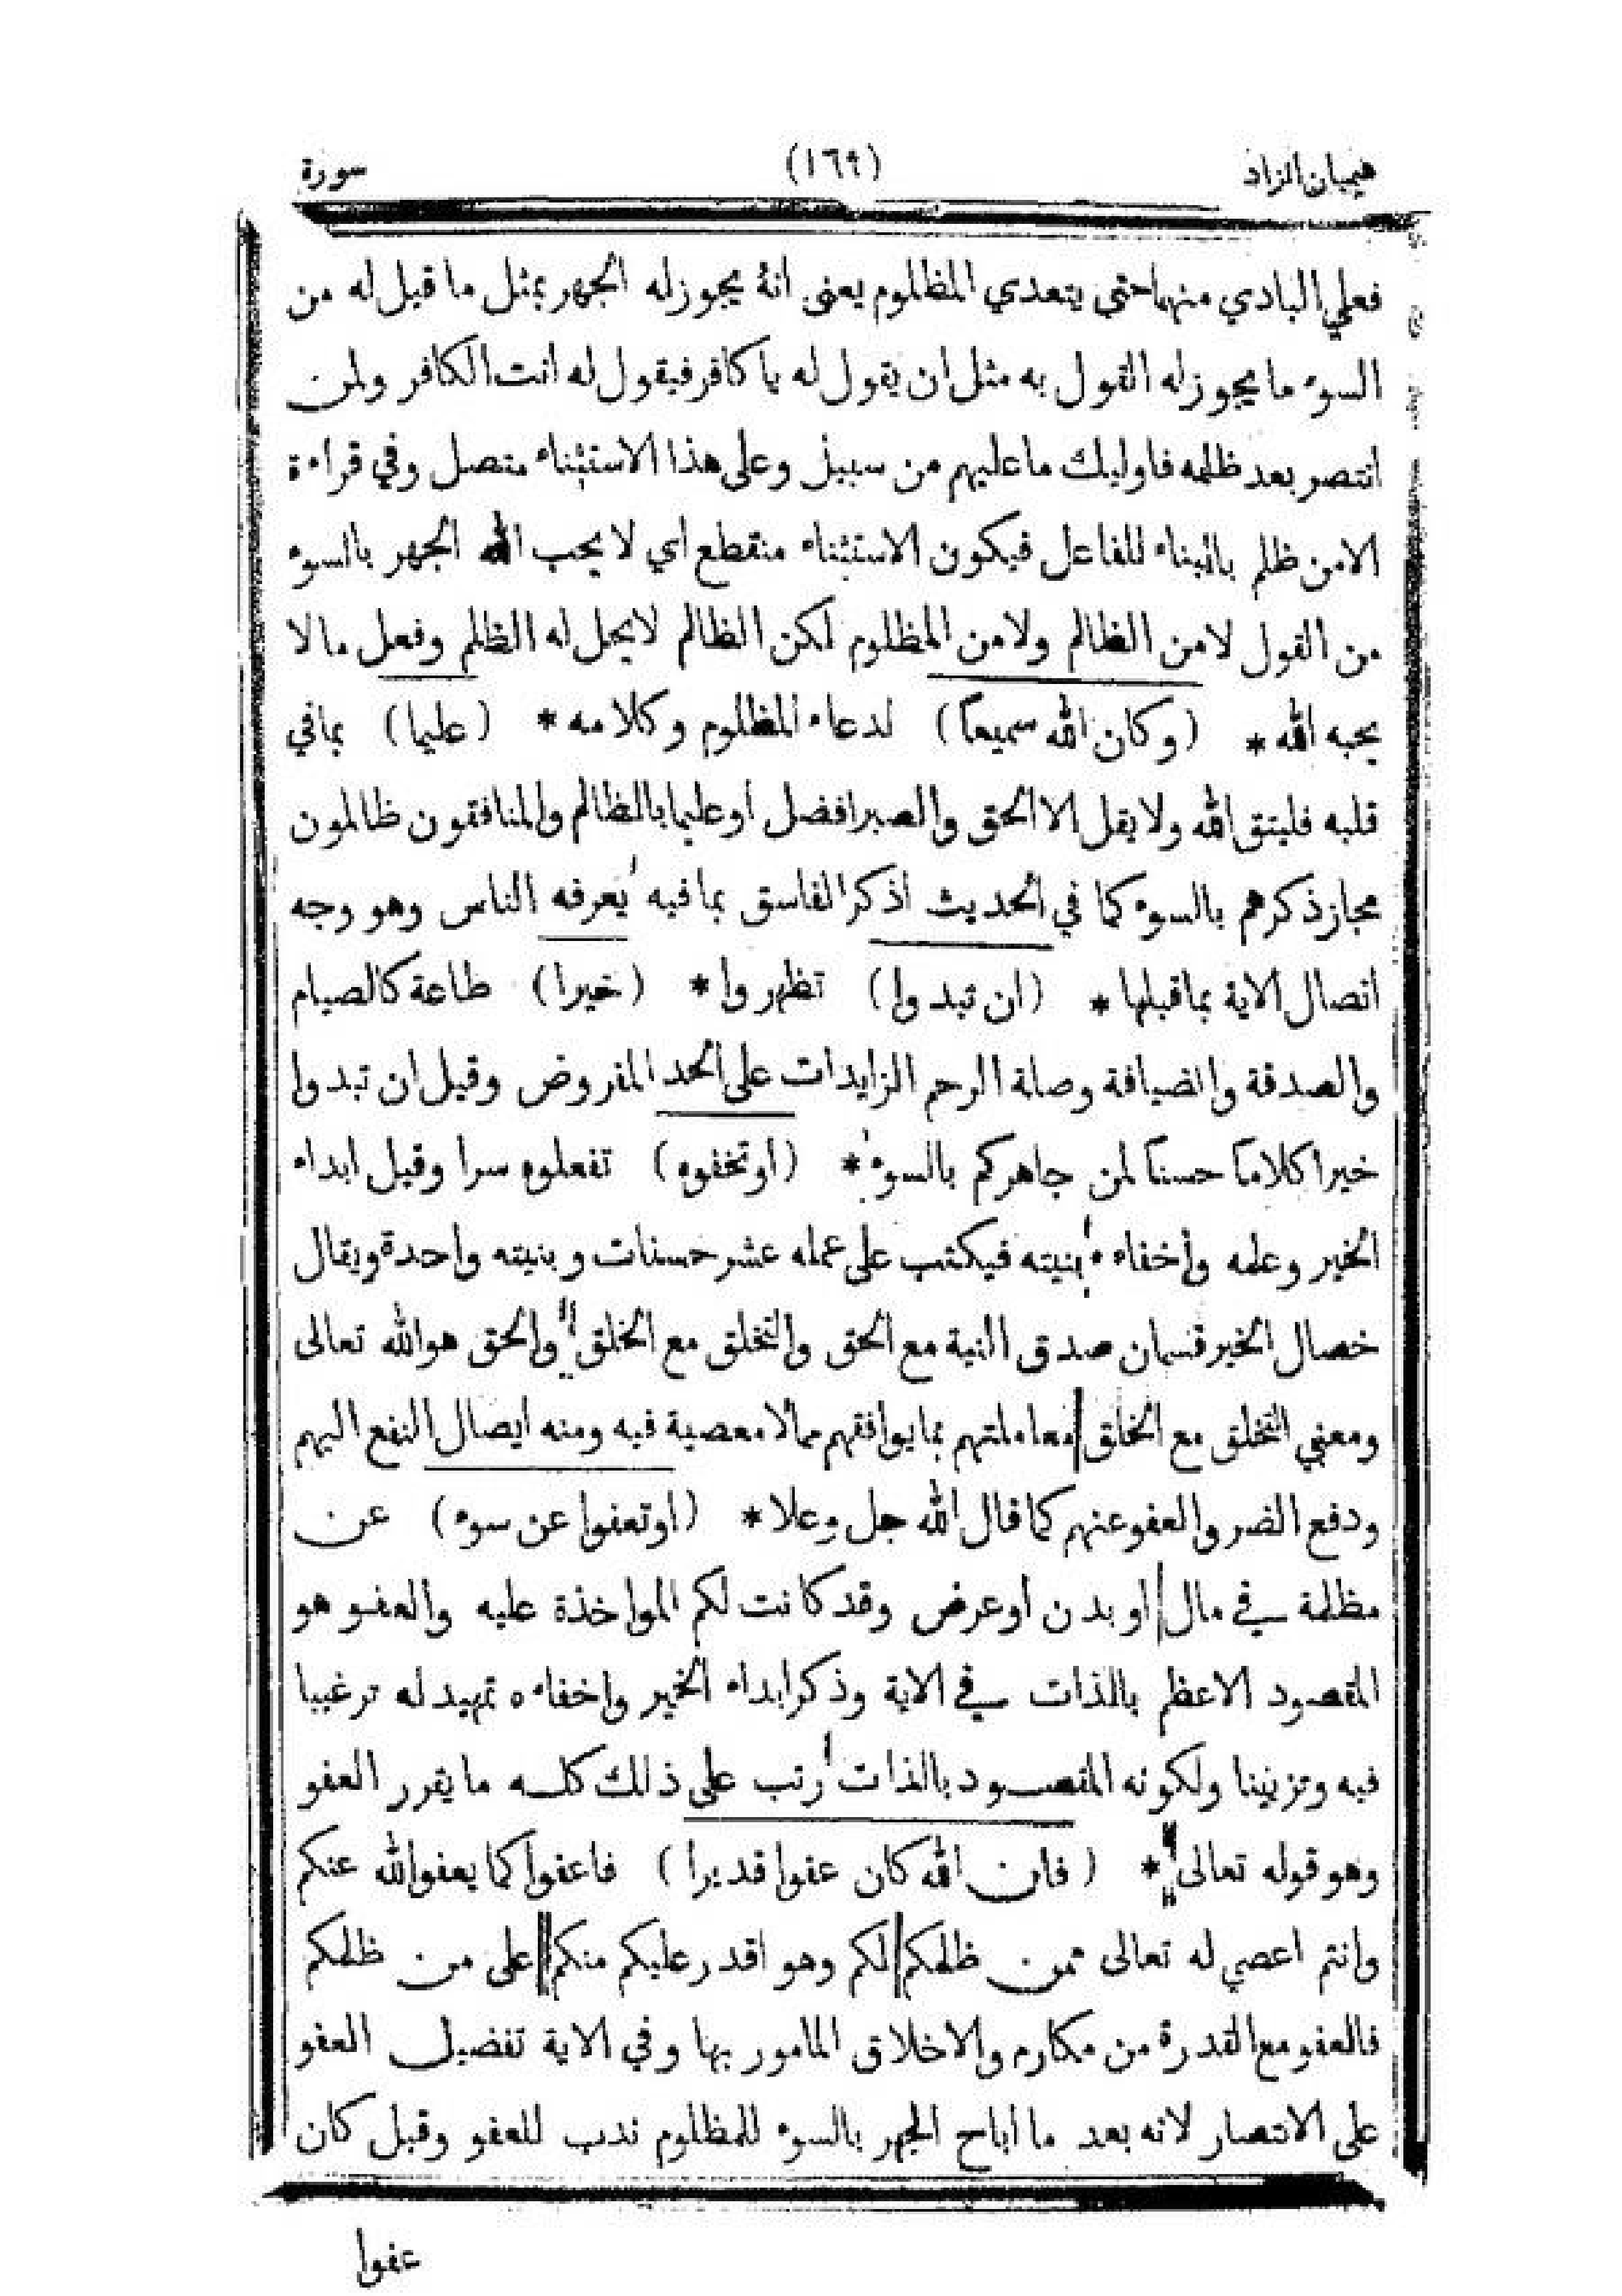 هيميان الزاد (١٦٩) سورة
فعلي البادي منهما حتى يتعدي المظلوم يعني انه يجوز له الجهر بمثل ما قيل له من
السوء ما يجوز له القول به مثل ان يقول له يا كافر فيقول له انت الكافر ولمن
انتصر بعد ظلمه فاوليك ما عليهم من سبيل وعلى هذا الاستثناء متصل وفي قراءة
الا من ظلم بالبناء للفاعل فيكون الاستثناء منقطع اي لا يحب الله الجهر بالسوء
من القول لا من الظالم ولا من المظلوم لكن الظالم لا يحل له الظلم وفعل ما لا
يحبه الله * (وكان الله سميعاً) لدعاء المظلوم وكلامه * (عليما) بما في
قلبه فليتق الله ولا يقل الا الحق والصبر افضل او عليما بالظالم والمنافقون ظالمون
مجاز ذكرهم بالسوء كما في الحديث اذكر الفاسق بما فيه يعرفه الناس وهو وجه
اتصال الاية بما قبلها * (ان تبدوا) تظهروا * (خيرا) طاعة كالصيام
والصدقة والضيافة وصلة الرحم الزايدات على الحد المفروض وقيل ان تبدوا
خيرا كلاماً حسناً لمن جاهركم بالسوء * (او تخفوه) تفعلوه سرا وقيل ابداء
الخير وعلمه وأخفاءه بنيته فيكتب على عمله عشر حسنات وبنيته واحدة ويقال
خصال الخير قسمان صدق النية مع الحق والتخلق مع الخلق والحق هو الله تعالى
ومعني التخلق مع الخلق معاملتهم بما يوافقهم مما لا معصية فيه ومنه ايصال النفع اليهم
ودفع الضر والعفو عنهم كما قال الله جل وعلا * (او تعفوا عن سوء) عن
مظلمة في مال او بدن او عرض وقد كانت لكم المواخذة عليه والعفو هو
المقصود الاعظم بالذات في الاية وذكر ابداء الخير واخفاءه تمهيد له ترغيبا
فيه وتزيينا ولكونه المقصود بالذات رتب على ذلك كله ما يقرر العفو
وهو قوله تعالى * (فان الله كان عفوا قديرا) فاعفوا كما يعفو الله عنكم
وانتم اعصي له تعالى ممن ظلمكم لكم وهو اقدر عليكم منكم على من ظلمكم
فالعفو مع القدرة من مكارم والاخلاق المامور بها وفي الاية تفضيل العفو
على الانتصار لانه بعد ما اباح الجهر بالسوء للمظلوم ندب للعفو وقيل كان
عفوا